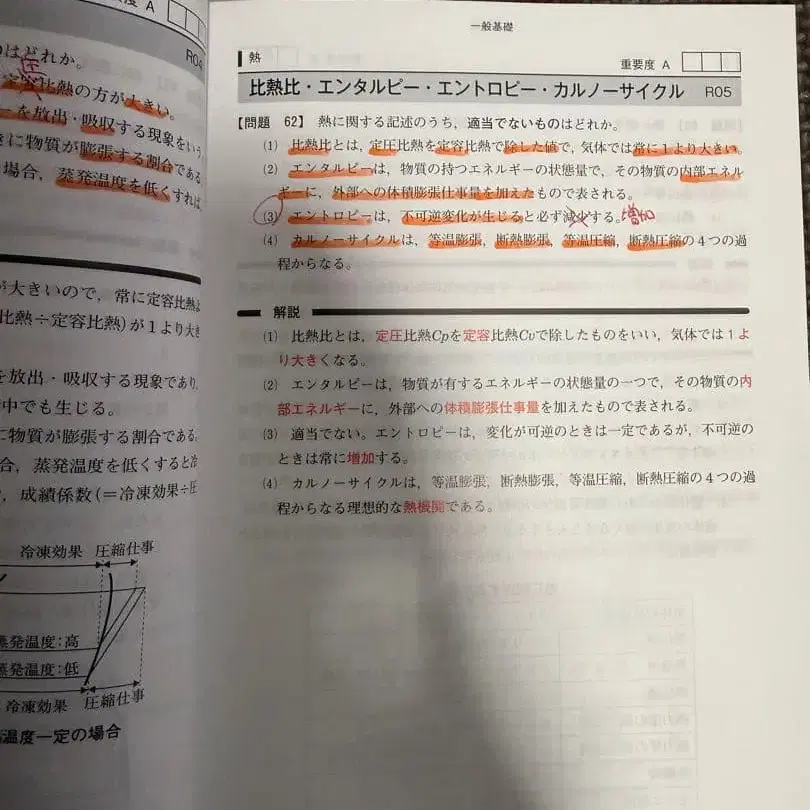 度 A
R04
のはどれか。
定容比熱の方が大きい。
圧
を放出・吸収する現象をいう
きに物質が膨張する割合である
場合，蒸発温度を低くすれば
が大きいので，常に定容比熱よ
比熱÷定容比熱)が1より大き
を放出・吸収する現象であり，
中でも生じる。
に物質が膨張する割合である。
合，蒸発温度を低くすると冷
，成績係数(＝冷凍効果÷圧
冷凍効果 圧縮仕事
蒸発温度：高
蒸発温度：低
冷凍効果 圧縮仕事
温度一定の場合
一般基礎
熱
重要度 A
比熱比・エンタルピー・エントロピー・カルノーサイクル R05
【問題 62】 熱に関する記述のうち，適当でないものはどれか。
(1) 比熱比とは，定圧比熱を定容比熱で除した値で，気体では常に1より大きい。
(2) エンタルピーは，物質の持つエネルギーの状態量で，その物質の内部エネル
ギーに，外部への体積膨張仕事量を加えたもので表される。
(3) エントロピーは，不可逆変化が生じると必ず減少する。増加
(4) カルノーサイクルは，等温膨張，断熱膨張，等温圧縮，断熱圧縮の4つの過
程からなる。
解説
(1) 比熱比とは，定圧比熱Cpを定容比熱Cvで除したものをいい，気体では1よ
り大きくなる。
(2) エンタルピーは，物質が有するエネルギーの状態量の一つで，その物質の内
部エネルギーに，外部への体積膨張仕事量を加えたもので表される。
(3) 適当でない。エントロピーは，変化が可逆のときは一定であるが，不可逆の
ときは常に増加する。
(4) カルノーサイクルは，等温膨張，断熱膨張，等温圧縮，断熱圧縮の4つの過
程からなる理想的な熱機関である。